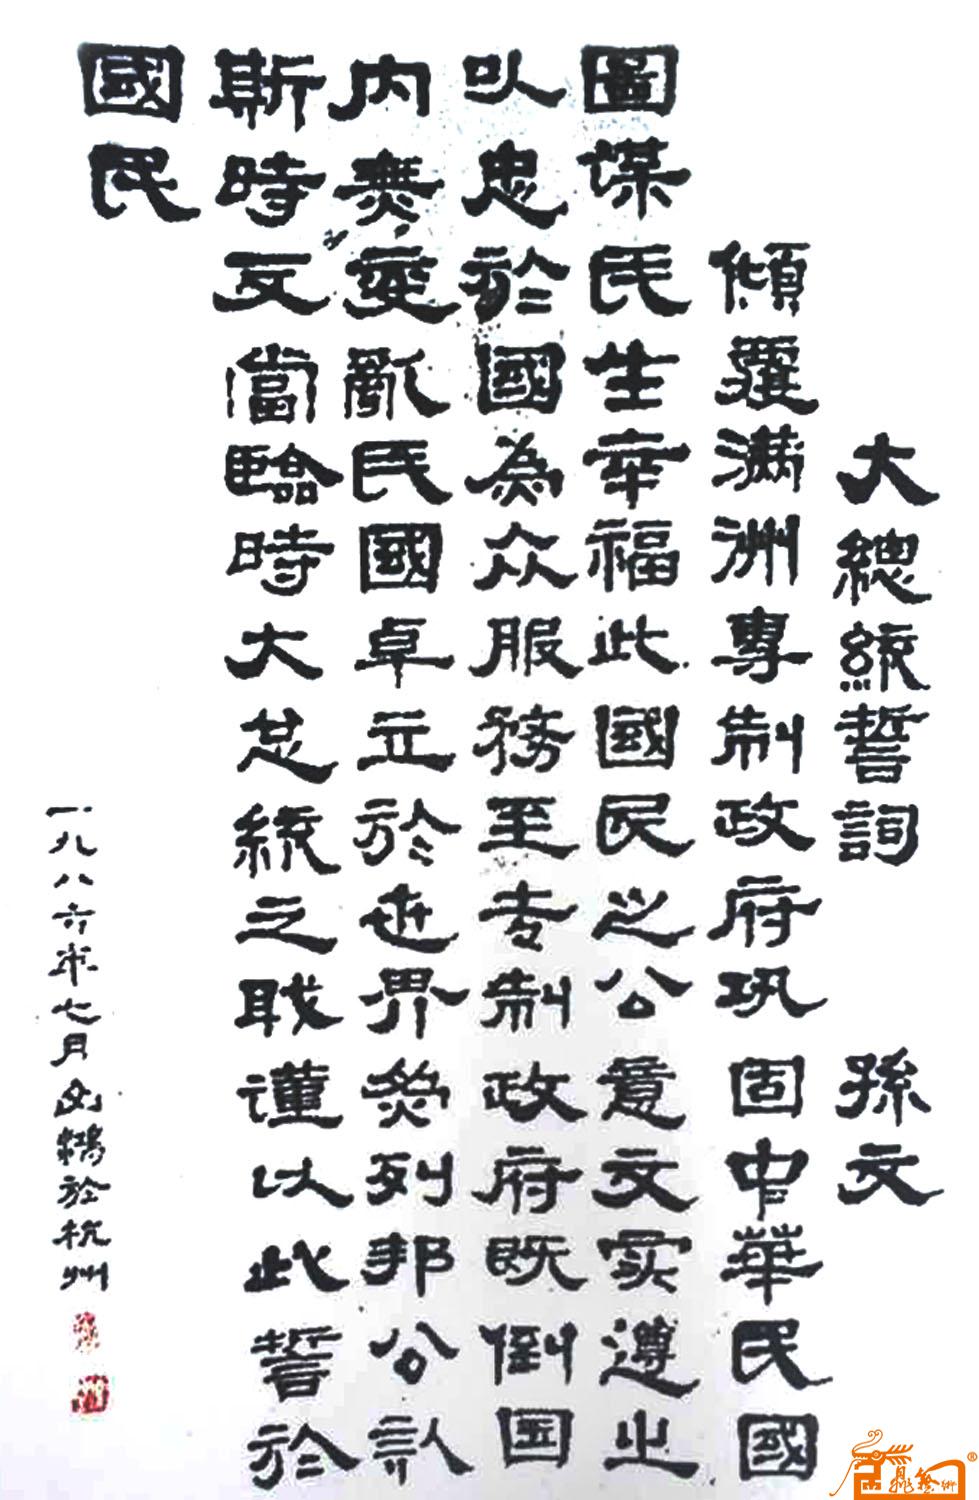 大總統誓詞 孫文
傾覆滿洲專制政府巩固中華民國
圖謀民生幸福此國民之公意文实遵之
以忠於國為众服務至专制政府既倒国
内無变亂民國卓立於世界為列邦公認
斯時文當臨時大总統之职謹以此誓於
國民
一九八六年七月 鴻於杭州